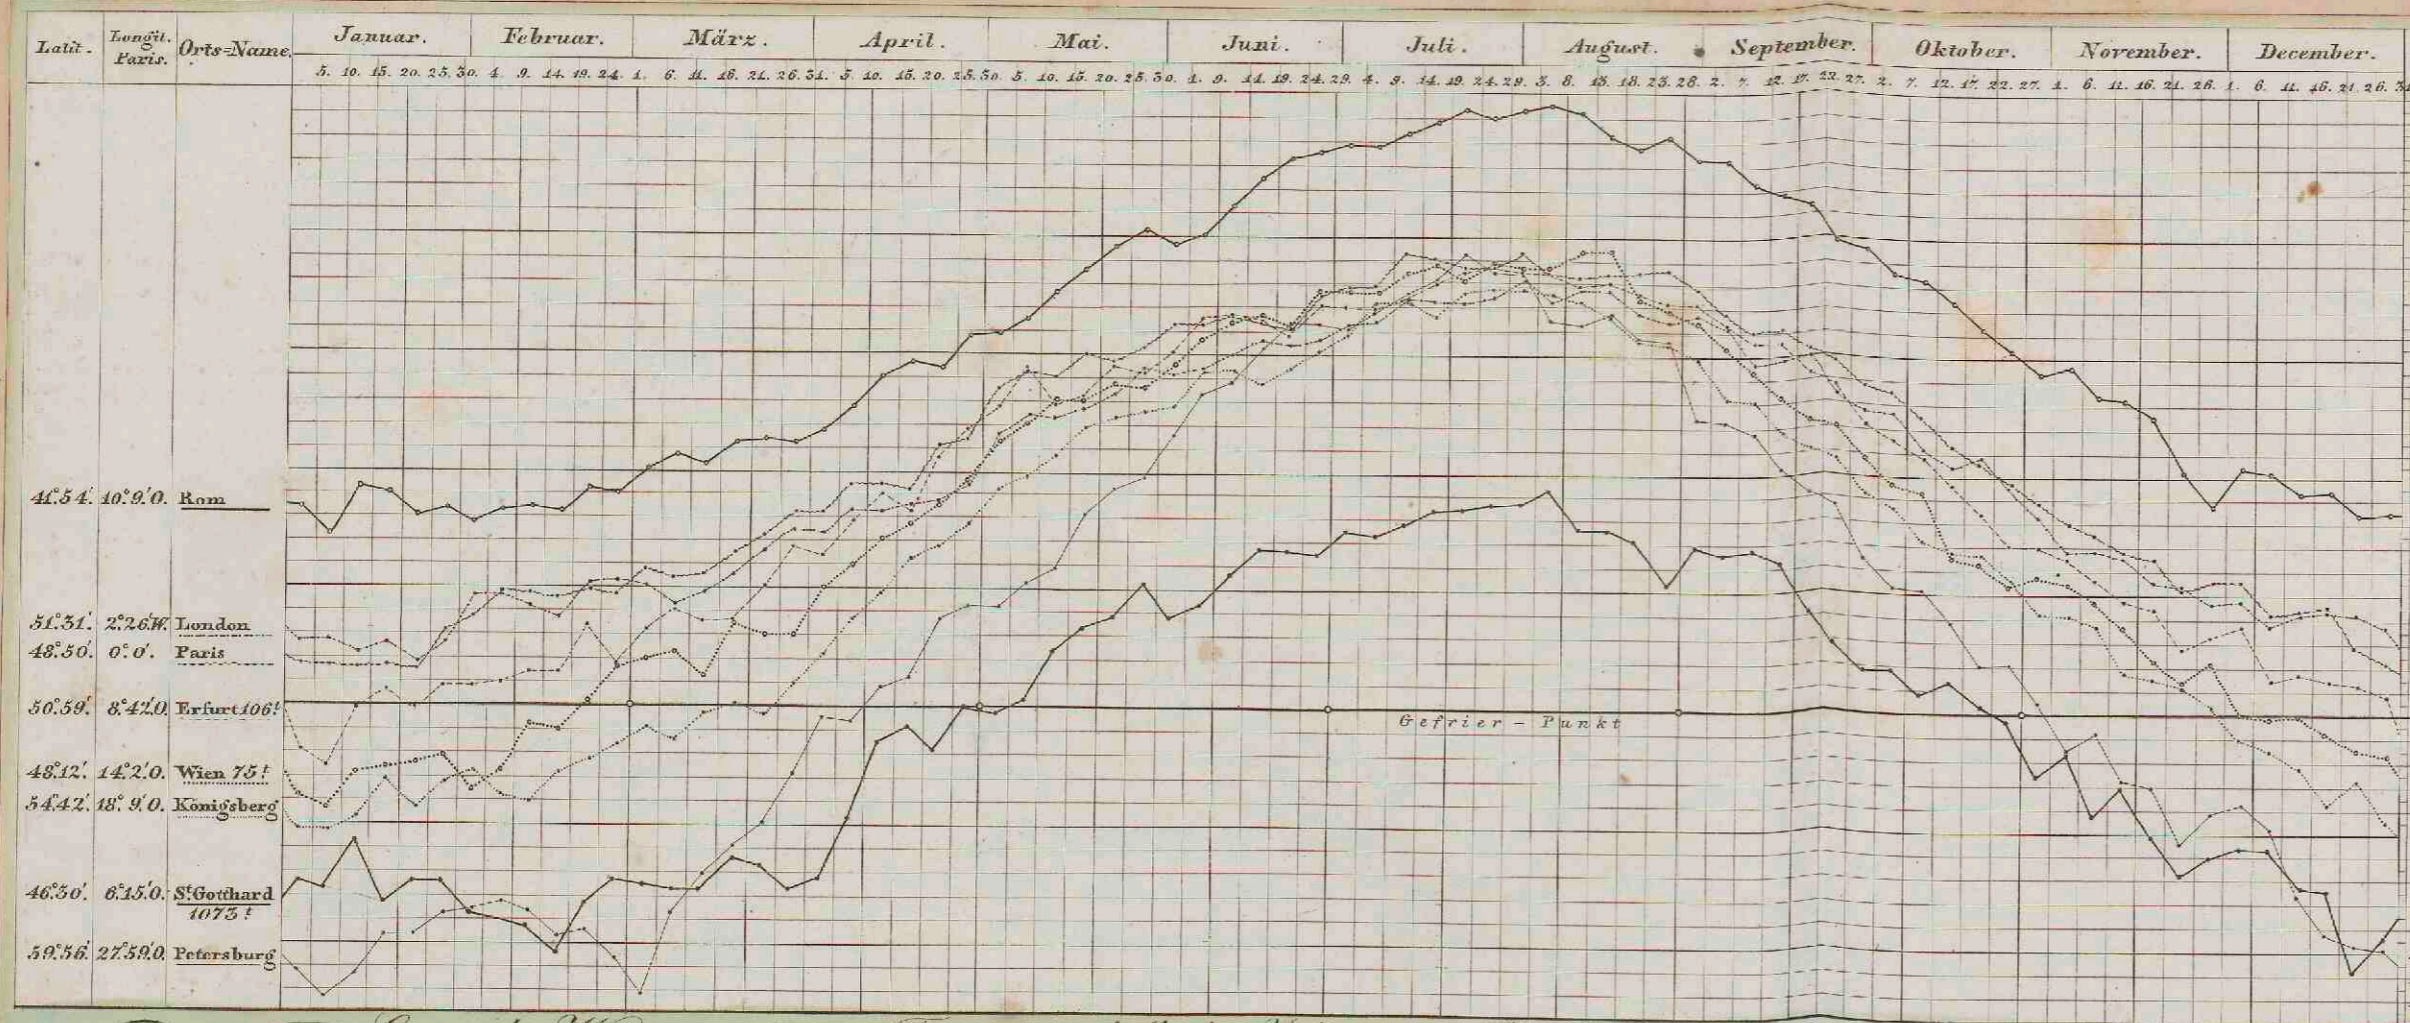 Latit. Longit. Paris. Orts=Name. Januar. Februar. März. April. Mai. Juni. Juli. August. September. Oktober. November. December.
5. 10. 15. 20. 25. 30. 4. 9. 14. 19. 24. 1. 6. 11. 16. 21. 26. 31. 5. 10. 15. 20. 25. 30. 5. 10. 15. 20. 25. 30. 4. 9. 14. 19. 24. 29. 4. 9. 14. 19. 24. 29. 3. 8. 13. 18. 23. 28. 2. 7. 12. 17. 22. 27. 2. 7. 12. 17. 22. 27. 1. 6. 11. 16. 21. 26. 1. 6. 11. 16. 21. 26. 31
41°54'. 10°9'.O. Rom
51°31'. 2°26'.W. London
48°50'. 0°0'. Paris
50°59'. 8°42'.O. Erfurt 106t
Gefrier - Punkt
48°12'. 14°2'.O. Wien 75t
54°42'. 18°9'.O. Königsberg
46°30'. 6°15'.O. St Gotthard
1073t
59°56'. 27°59'.O. Petersburg